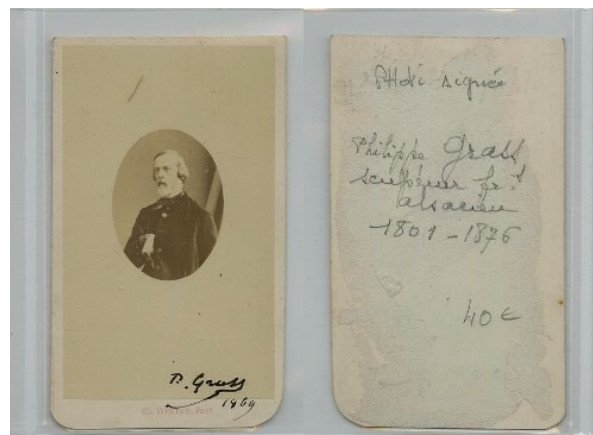 P. Grass
1869
CH. WINTER, PHOT.
Photo signée
Philippe Grass
sculpteur fr.s
alsacien
1801 - 1876
40 €